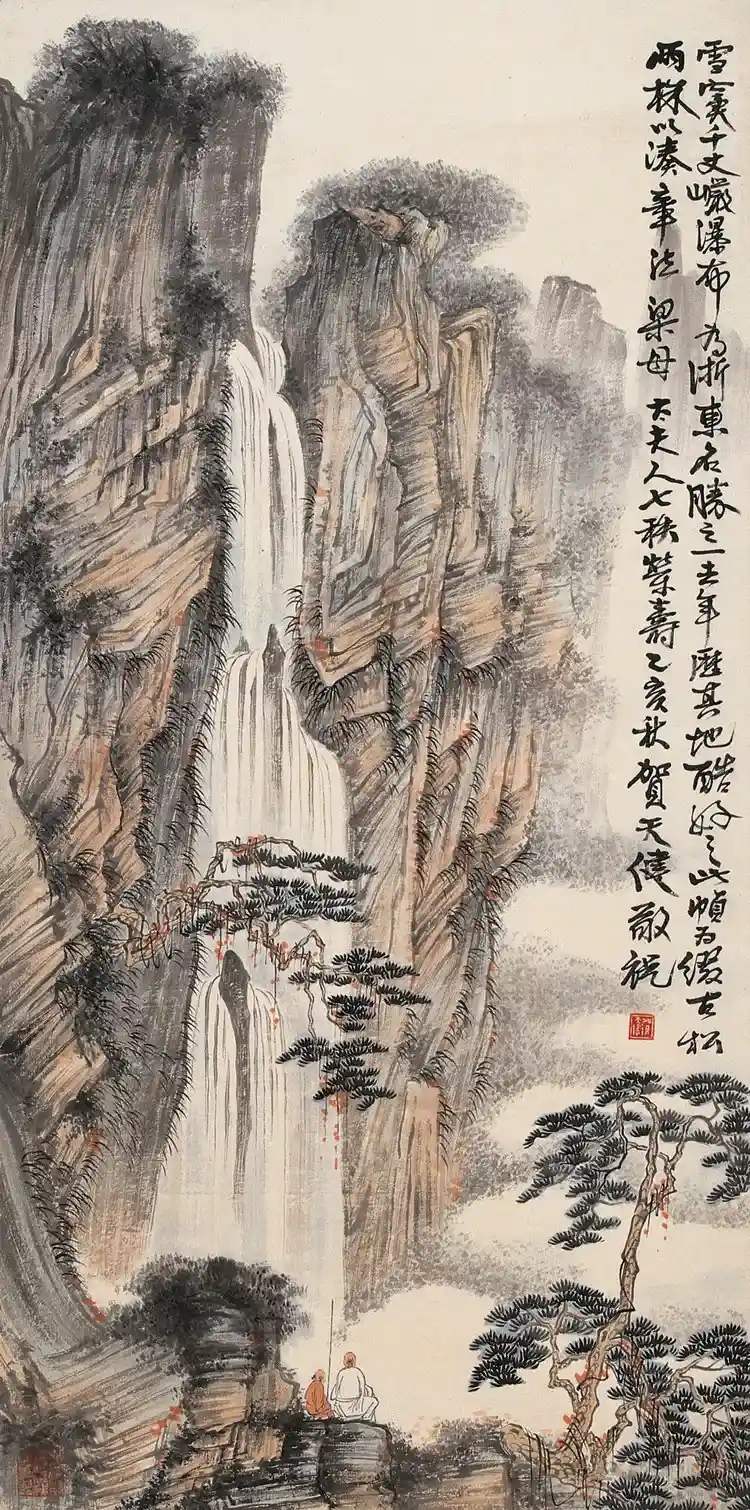 雪竇千丈巖瀑布為浙東名勝之一去年歷其地酷好之此幀為綴古松
兩株以湊章法 梁母 太夫人七秩榮壽乙亥秋賀天健敬祝